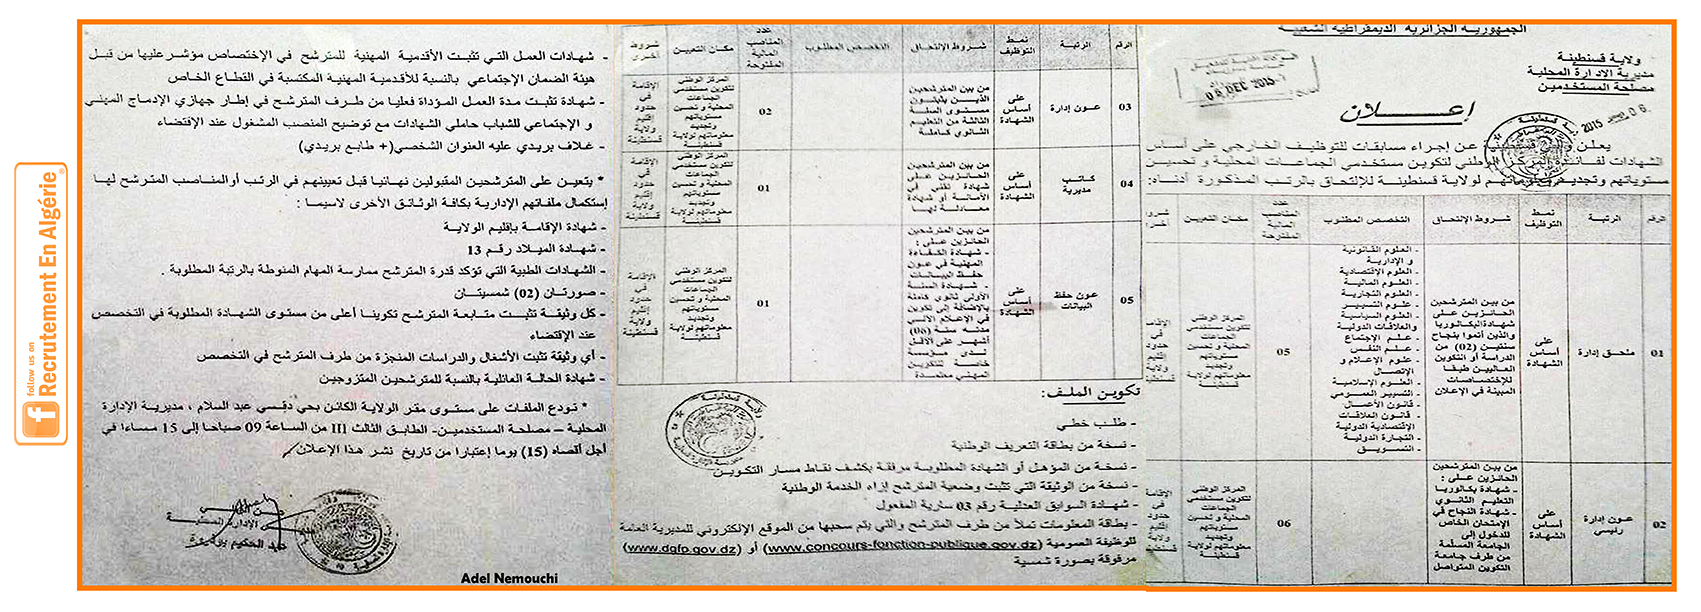 الجمهورية الجزائرية الديمقراطية الشعبية
ولاية قسنطينة
مديرية الإدارة المحلية
مصلحة المستخدمين
06 ديسمبر 2015
إعـــلان
يعلن والي قسنطينة عن إجراء مسابقات للتوظيف الخارجي على أساس
الشهادات لفائدة المركز الوطني لتكوين مستخدمي الجماعات المحلية و تحسين
مستوياتهم وتجديد معلوماتهم لولاية قسنطينة للإلتحاق بالرتب المذكورة أدناه:
الرقم
الرتبة
نمط
التوظيف
شروط الإلتحاق
التخصص المطلوب
عدد
المناصب
المالية
المفتوحة
مكان التعيين
شروط
أخرى
01
ملحق إدارة
على
أساس
الشهادة
من بين المترشحين
الحائزين على
شهادة البكالوريا
والذين أتموا بنجاح
سنتين (02) من
الدراسة أو التكوين
العاليين طبقا
للإختصاصات
المبينة في الإعلان
- العلوم القانونية
و الإدارية
- العلوم الإقتصادية
- العلوم المالية
- العلوم التجارية
- علوم التسيير
- العلوم السياسية
والعلاقات الدولية
- علم الإجتماع
- علم النفس
- علوم الإعلام و
الإتصال
- العلوم الإسلامية
- التسيير العمومي
- قانون الأعمال
- قانون العلاقات
الإقتصادية الدولية
- التجارة الدولية
- التسويق
05
المركز الوطني
لتكوين مستخدمي
الجماعات
المحلية و تحسين
مستوياتهم
وتجديد
معلوماتهم لولاية
قسنطينة
الإقامة
في
حدود
إقليم
ولاية
قسنطينة
02
عون إدارة
رئيسي
على
أساس
الشهادة
من بين المترشحين
الحائزين على :
- شهادة بكالوريا
التعليم الثانوي
- شهادة النجاح في
الإمتحان الخاص
للدخول إلى
الجامعة المسلمة
من طرف جامعة
التكوين المتواصل
06
المركز الوطني
لتكوين مستخدمي
الجماعات
المحلية و تحسين
مستوياتهم
وتجديد
معلوماتهم لولاية
قسنطينة
الإقامة
في
حدود
إقليم
ولاية
قسنطينة
الرقم
الرتبة
نمط
التوظيف
شروط الإلتحاق
التخصص المطلوب
عدد
المناصب
المالية
المفتوحة
مكان التعيين
شروط
أخرى
03
عون إدارة
على
أساس
الشهادة
من بين المترشحين
الذين يثبتون
مستوى السنة
الثالثة من التعليم
الثانوي كاملة
02
المركز الوطني
لتكوين مستخدمي
الجماعات
المحلية و تحسين
مستوياتهم
وتجديد
معلوماتهم لولاية
قسنطينة
الإقامة
في
حدود
إقليم
ولاية
قسنطينة
04
كاتب
مديرية
على
أساس
الشهادة
من بين المترشحين
الحائزين على
شهادة تقني في
الأمانة أو شهادة
معادلة لها
01
المركز الوطني
لتكوين مستخدمي
الجماعات
المحلية و تحسين
مستوياتهم
وتجديد
معلوماتهم لولاية
قسنطينة
الإقامة
في
حدود
إقليم
ولاية
قسنطينة
05
عون حفظ
البيانات
على
أساس
الشهادة
من بين المترشحين
الحائزين على :
- شهادة الكفاءة
المهنية في عون
حفظ البيانات
- شهادة السنة
الأولى ثانوي كاملة
بالإضافة إلى تكوين
في الإعلام الآلي
مدته ستة (06)
أشهر على الأقل
لدى مؤسسة
خاصة للتكوين
المهني معتمدة
01
المركز الوطني
لتكوين مستخدمي
الجماعات
المحلية و تحسين
مستوياتهم
وتجديد
معلوماتهم لولاية
قسنطينة
الإقامة
في
حدود
إقليم
ولاية
قسنطينة
تكوين الملف:
- طلب خطي
- نسخة من بطاقة التعريف الوطنية
- نسخة من المؤهل أو الشهادة المطلوبة مرفقة بكشف نقاط مسار التكوين
- نسخة من الوثيقة التي تثبت وضعية المترشح إزاء الخدمة الوطنية
- شهادة السوابق العدلية رقم 03 سارية المفعول
- بطاقة المعلومات تملأ من طرف المترشح والتي يتم سحبها من الموقع الإلكتروني للمديرية العامة
للوظيفة العمومية (www.concours-fonction-publique.gov.dz) أو (www.dgfp.gov.dz)
مرفوقة بصورة شمسية
- شهادات العمل التي تثبت الأقدمية المهنية للمترشح في الإختصاص مؤشر عليها من قبل
هيئة الضمان الإجتماعي بالنسبة للأقدمية المهنية المكتسبة في القطاع الخاص
- شهادة تثبت مدة العمل المؤداة فعليا من طرف المترشح في إطار جهازي الإدماج المهني
و الإجتماعي للشباب حاملي الشهادات مع توضيح المنصب المشغول عند الإقتضاء
- غلاف بريدي عليه العنوان الشخصي(+ طابع بريدي)
* يتعين على المترشحين المقبولين نهائيا قبل تعيينهم في الرتب أو المناصب المترشح لها
إستكمال ملفاتهم الإدارية بكافة الوثائق الأخرى لاسيما :
- شهادة الإقامة بإقليم الولاية
- شهادة الميلاد رقم 13
- الشهادات الطبية التي تؤكد قدرة المترشح ممارسة المهام المنوطة بالرتبة المطلوبة .
- صورتان (02) شمسيتان
- كل وثيقة تثبت متابعة المترشح تكوينا أعلى من مستوى الشهادة المطلوبة في التخصص
عند الإقتضاء
- أي وثيقة تثبت الأشغال والدراسات المنجزة من طرف المترشح في التخصص
- شهادة الحالة العائلية بالنسبة للمترشحين المتزوجين
* تودع الملفات على مستوى مقر الولاية الكائن بحي دقسي عبد السلام ، مديرية الإدارة
المحلية – مصلحة المستخدمين- الطابق الثالث III من الساعة 09 صباحا إلى 15 مساءا في
أجل أقصاه (15) يوما إعتبارا من تاريخ نشر هذا الإعلان
Adel Nemouchi
follow us on
Recrutement En Algérie